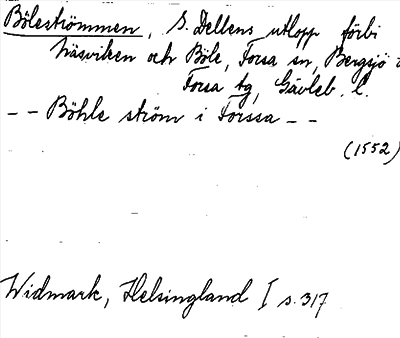 Böleströmmen, S. Dellens utlopp förbi
Näsviken och Böle, Forsa sn, Bergsjö o
Forsa tg, Gävleb. l.
-- Böhle ström i Forssa --
(1552)
Widmark, Helsingland I s. 317